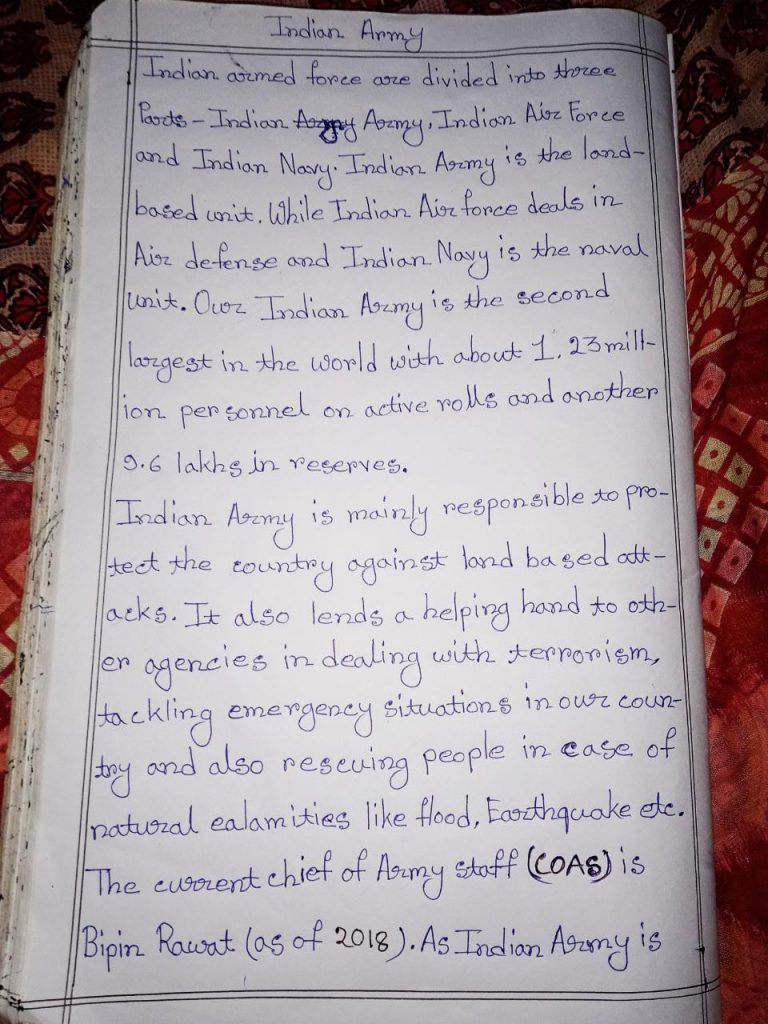 Indian Army
Indian armed force are divided into three
Parts - Indian Army, Indian Air Force
and Indian Navy. Indian Army is the land-
based unit. While Indian Air force deals in
Air defense and Indian Navy is the naval
unit. Our Indian Army is the second
largest in the world with about 1.23 mill-
ion personnel on active rolls and another
9.6 lakhs in reserves.
Indian Army is mainly responsible to pro-
tect the country against land based att-
acks. It also lends a helping hand to oth-
er agencies in dealing with terrorism,
tackling emergency situations in our coun-
try and also rescuing people in case of
natural calamities like flood, Earthquake etc.
The current chief of Army staff (COAS) is
Bipin Rawat (as of 2018). As Indian Army is